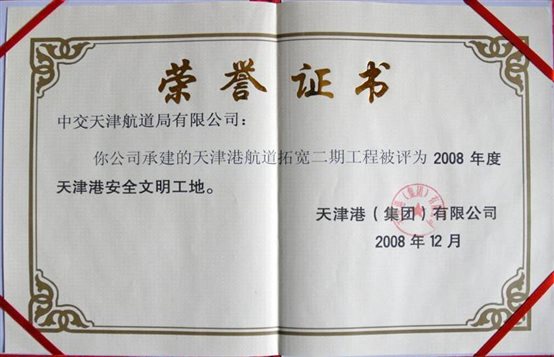 荣誉证书
中交天津航道局有限公司：
你公司承建的天津港航道拓宽二期工程被评为 2008 年度
天津港安全文明工地。
天津港（集团）有限公司
2008 年 12 月